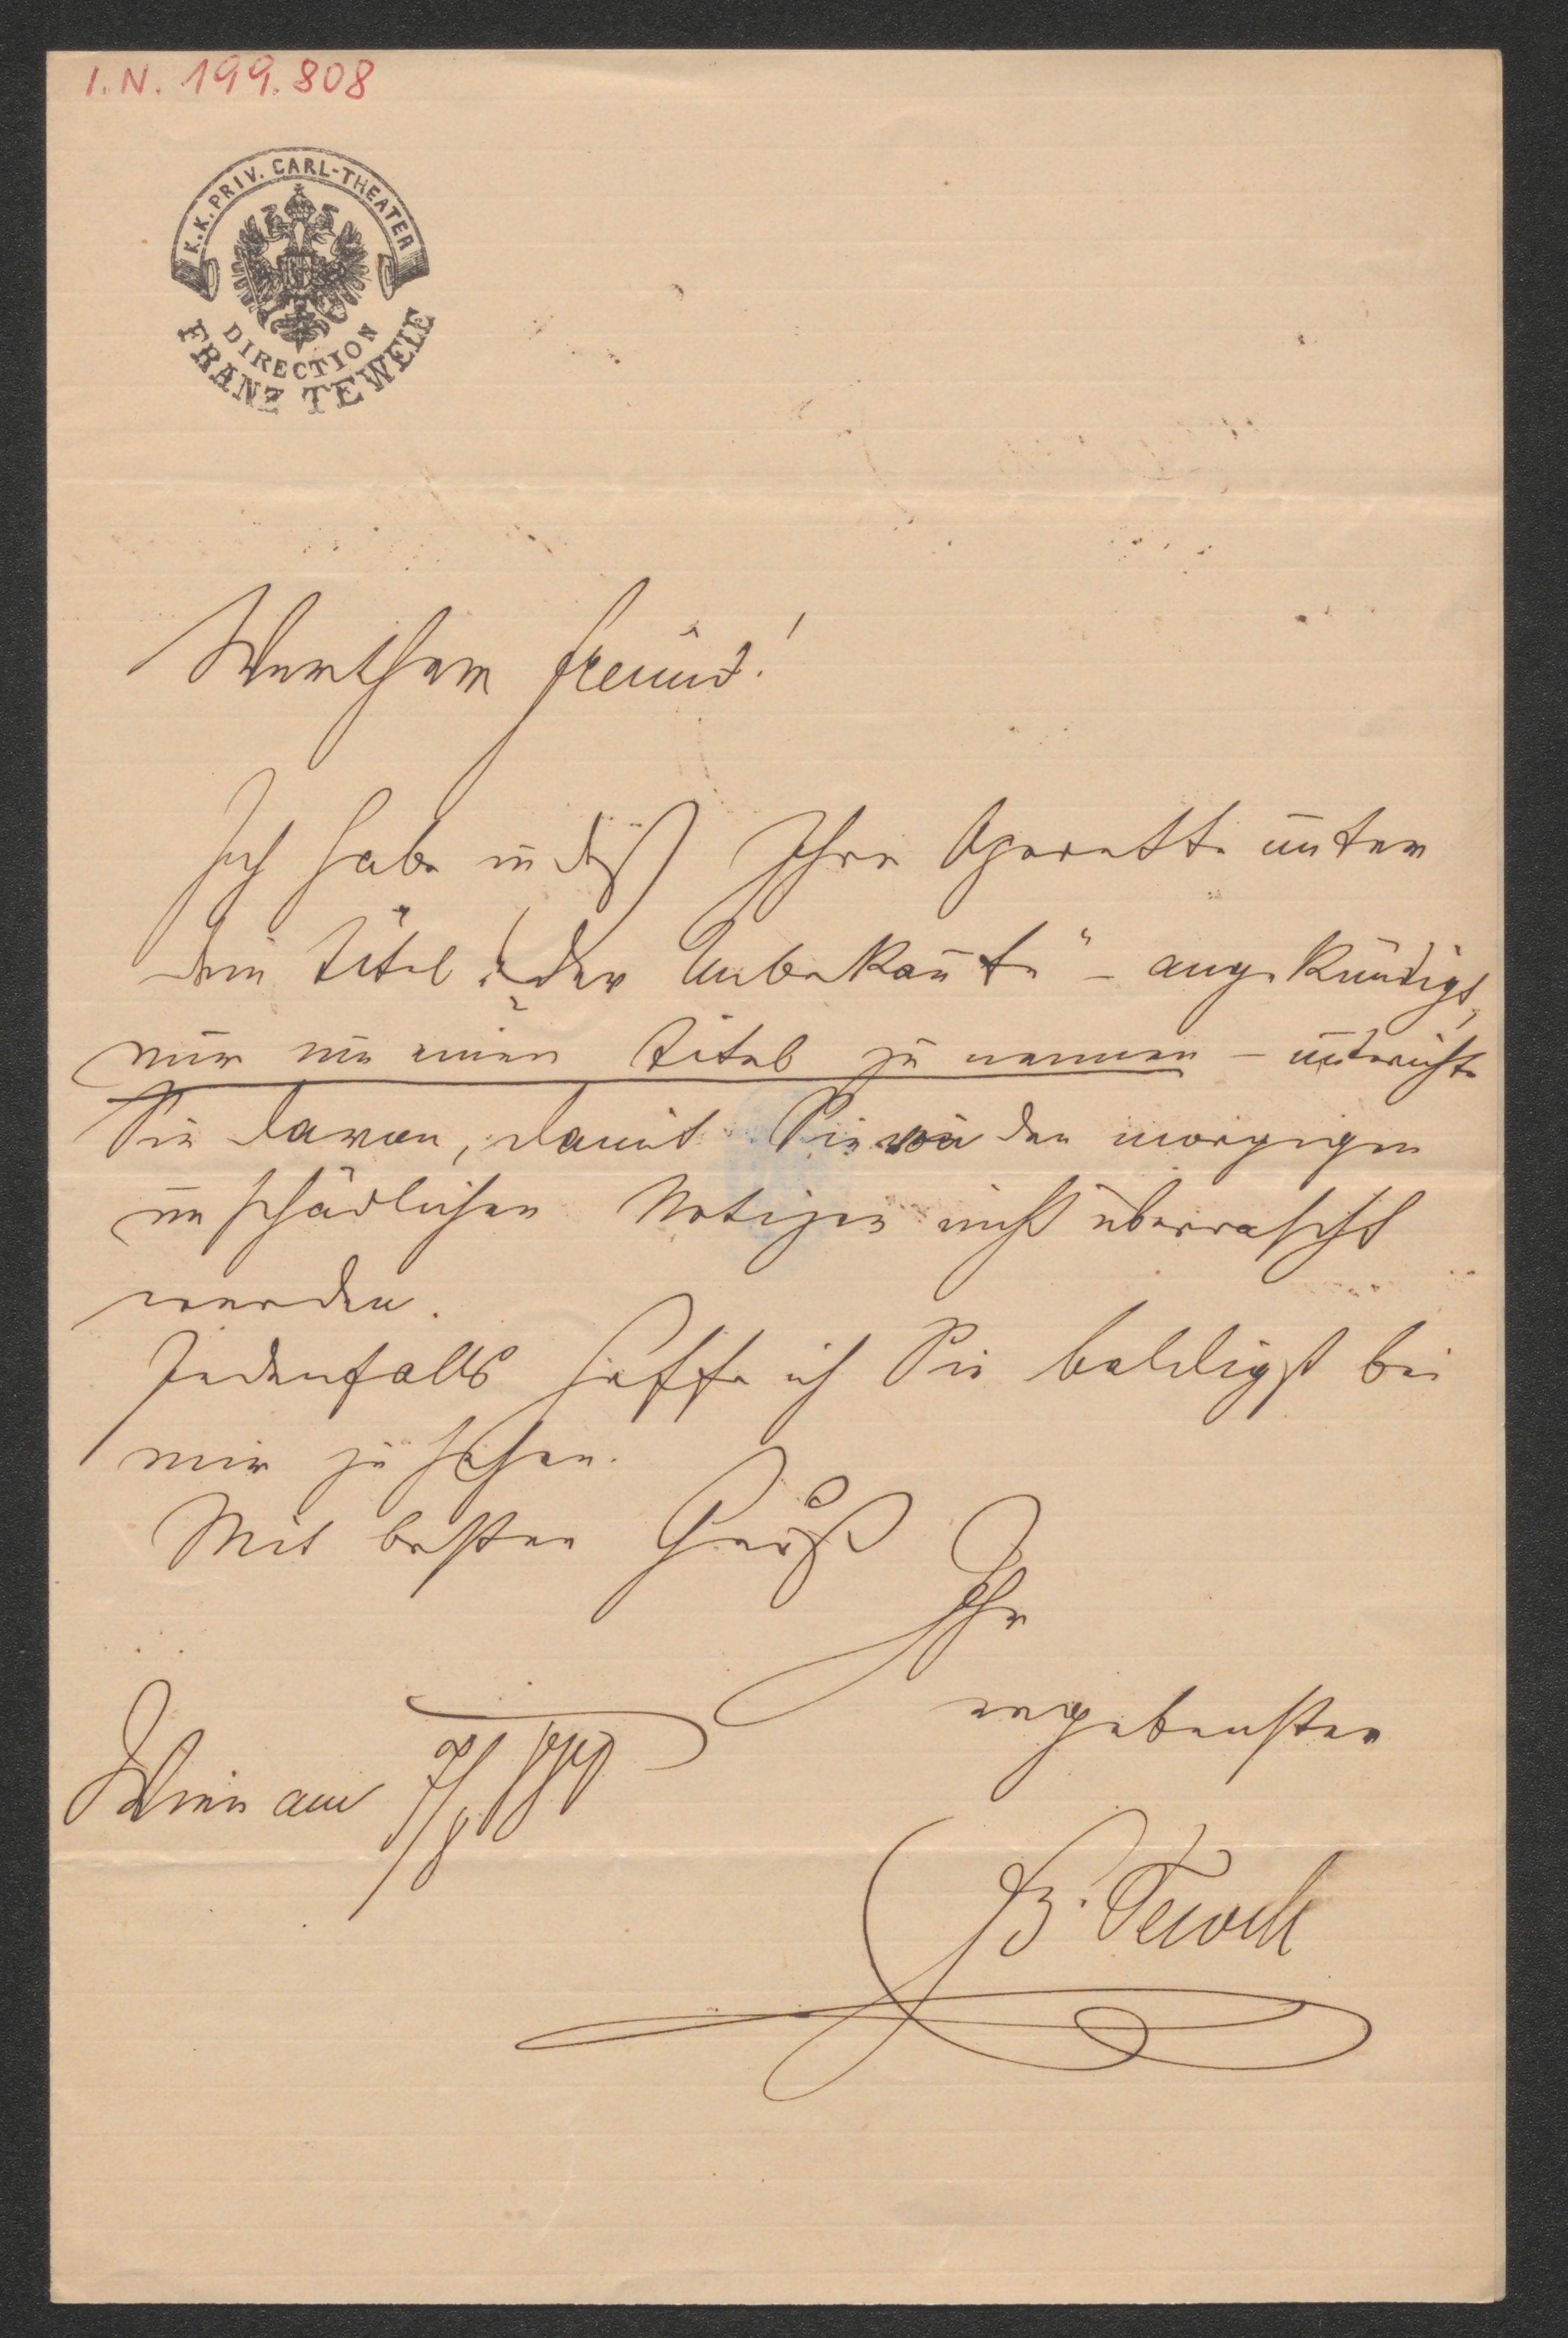 I.N. 199.808
K.K. PRIV. CARL-THEATER
DIRECTION
FRANZ TEWELE
Werther Freund!
Ich habe indeß Ihre Operette unter
dem Titel „der Unbekañte“ – angekündigt,
nur um einen Titel zu nennen –
Sie davon, damit Sie von den morgigen
unschädlichen Notizen nicht überrascht
werden.
Jedenfalls hoffe ich Sie baldigst bei
mir zu sehen.
Mit besten Gruß
Ihr
ergebenster
Wien am
F. Tewele